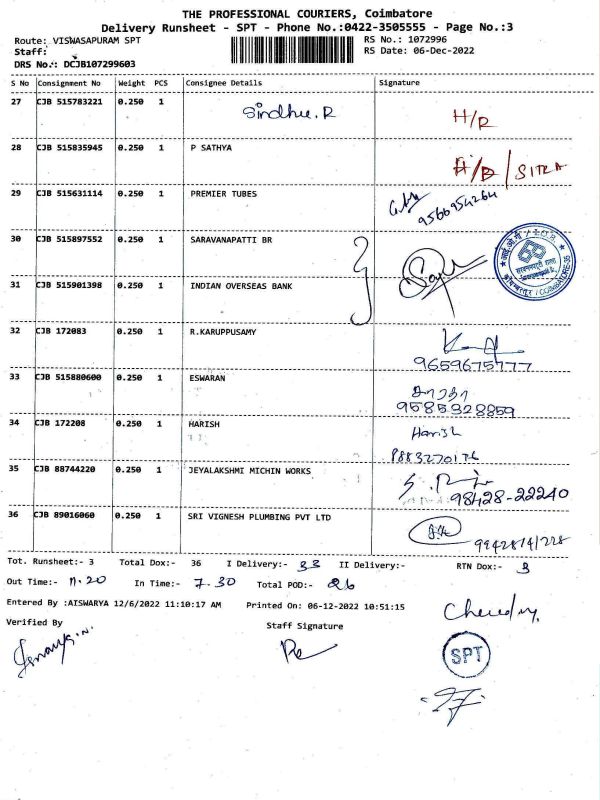 THE PROFESSIONAL COURIERS, Coimbatore
Delivery Runsheet - SPT - Phone No.:0422-3505555 - Page No.:3
Route: VISWASAPURAM SPT
RS No.: 1072996
Staff:
RS Date: 06-Dec-2022
DRS No.: DCJB107299603
S No Consignment No Weight PCS Consignee Details Signature
27 CJB 515783221 0.250 1 Sindhu.R H/R
28 CJB 515835945 0.250 1 P SATHYA H/D/SITRA
29 CJB 515631114 0.250 1 PREMIER TUBES
9566954264
30 CJB 515897552 0.250 1 SARAVANAPATTI BR
31 CJB 515901398 0.250 1 INDIAN OVERSEAS BANK
32 CJB 172083 0.250 1 R.KARUPPUSAMY
9659675777
33 CJB 515880600 0.250 1 ESWARAN
9585328859
34 CJB 172208 0.250 1 HARISH Harish
35 CJB 88744220 0.250 1 JEYALAKSHMI MICHIN WORKS
98428-22240
36 CJB 89016060 0.250 1 SRI VIGNESH PLUMBING PVT LTD
Tot. Runsheet:- 3 Total Dox:- 36 I Delivery:- 33 II Delivery:- RTN Dox:- 3
Out Time:- 11.20 In Time:- 7.30 Total POD:- 26
Entered By :AISWARYA 12/6/2022 11:10:17 AM Printed On: 06-12-2022 10:51:15
Verified By Staff Signature
SPT